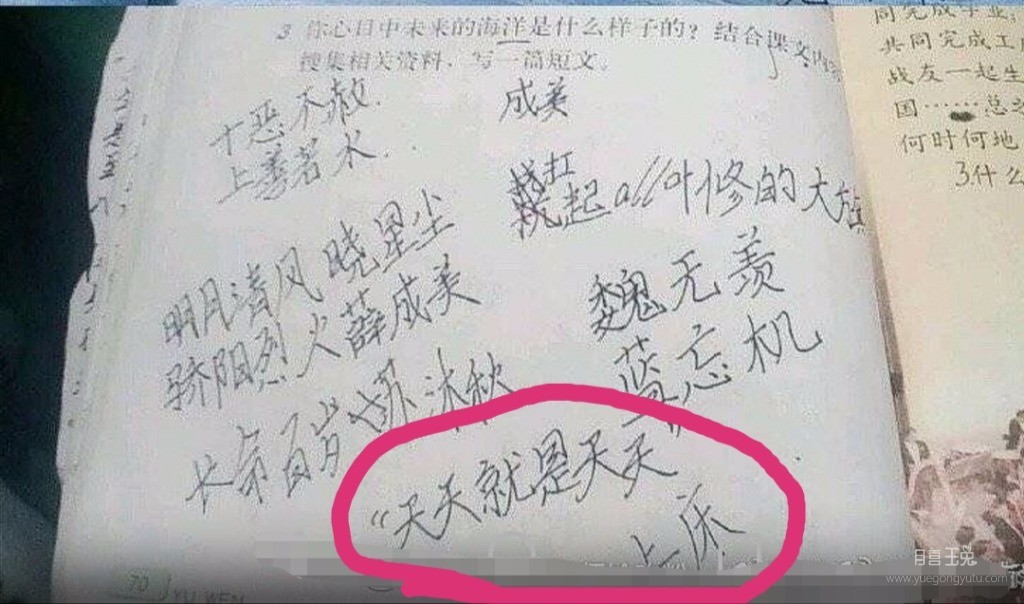 3 你心目中未来的海洋是什么样子的？结合课文内容
搜集相关资料，写一篇短文。
十恶不赦.
上善若水..
成美
扛
起all叶修的大旗
明月清风晓星尘
骄阳烈火薛成美
长命百岁苏沐秋
魏无羡
蓝忘机
“天天就是天天
上床
70
YU WEN
同完成学业;
共同完成工
战友一起生
国……总
何时何地
3什么
月喜玉兔
www.yuegongyutu.com